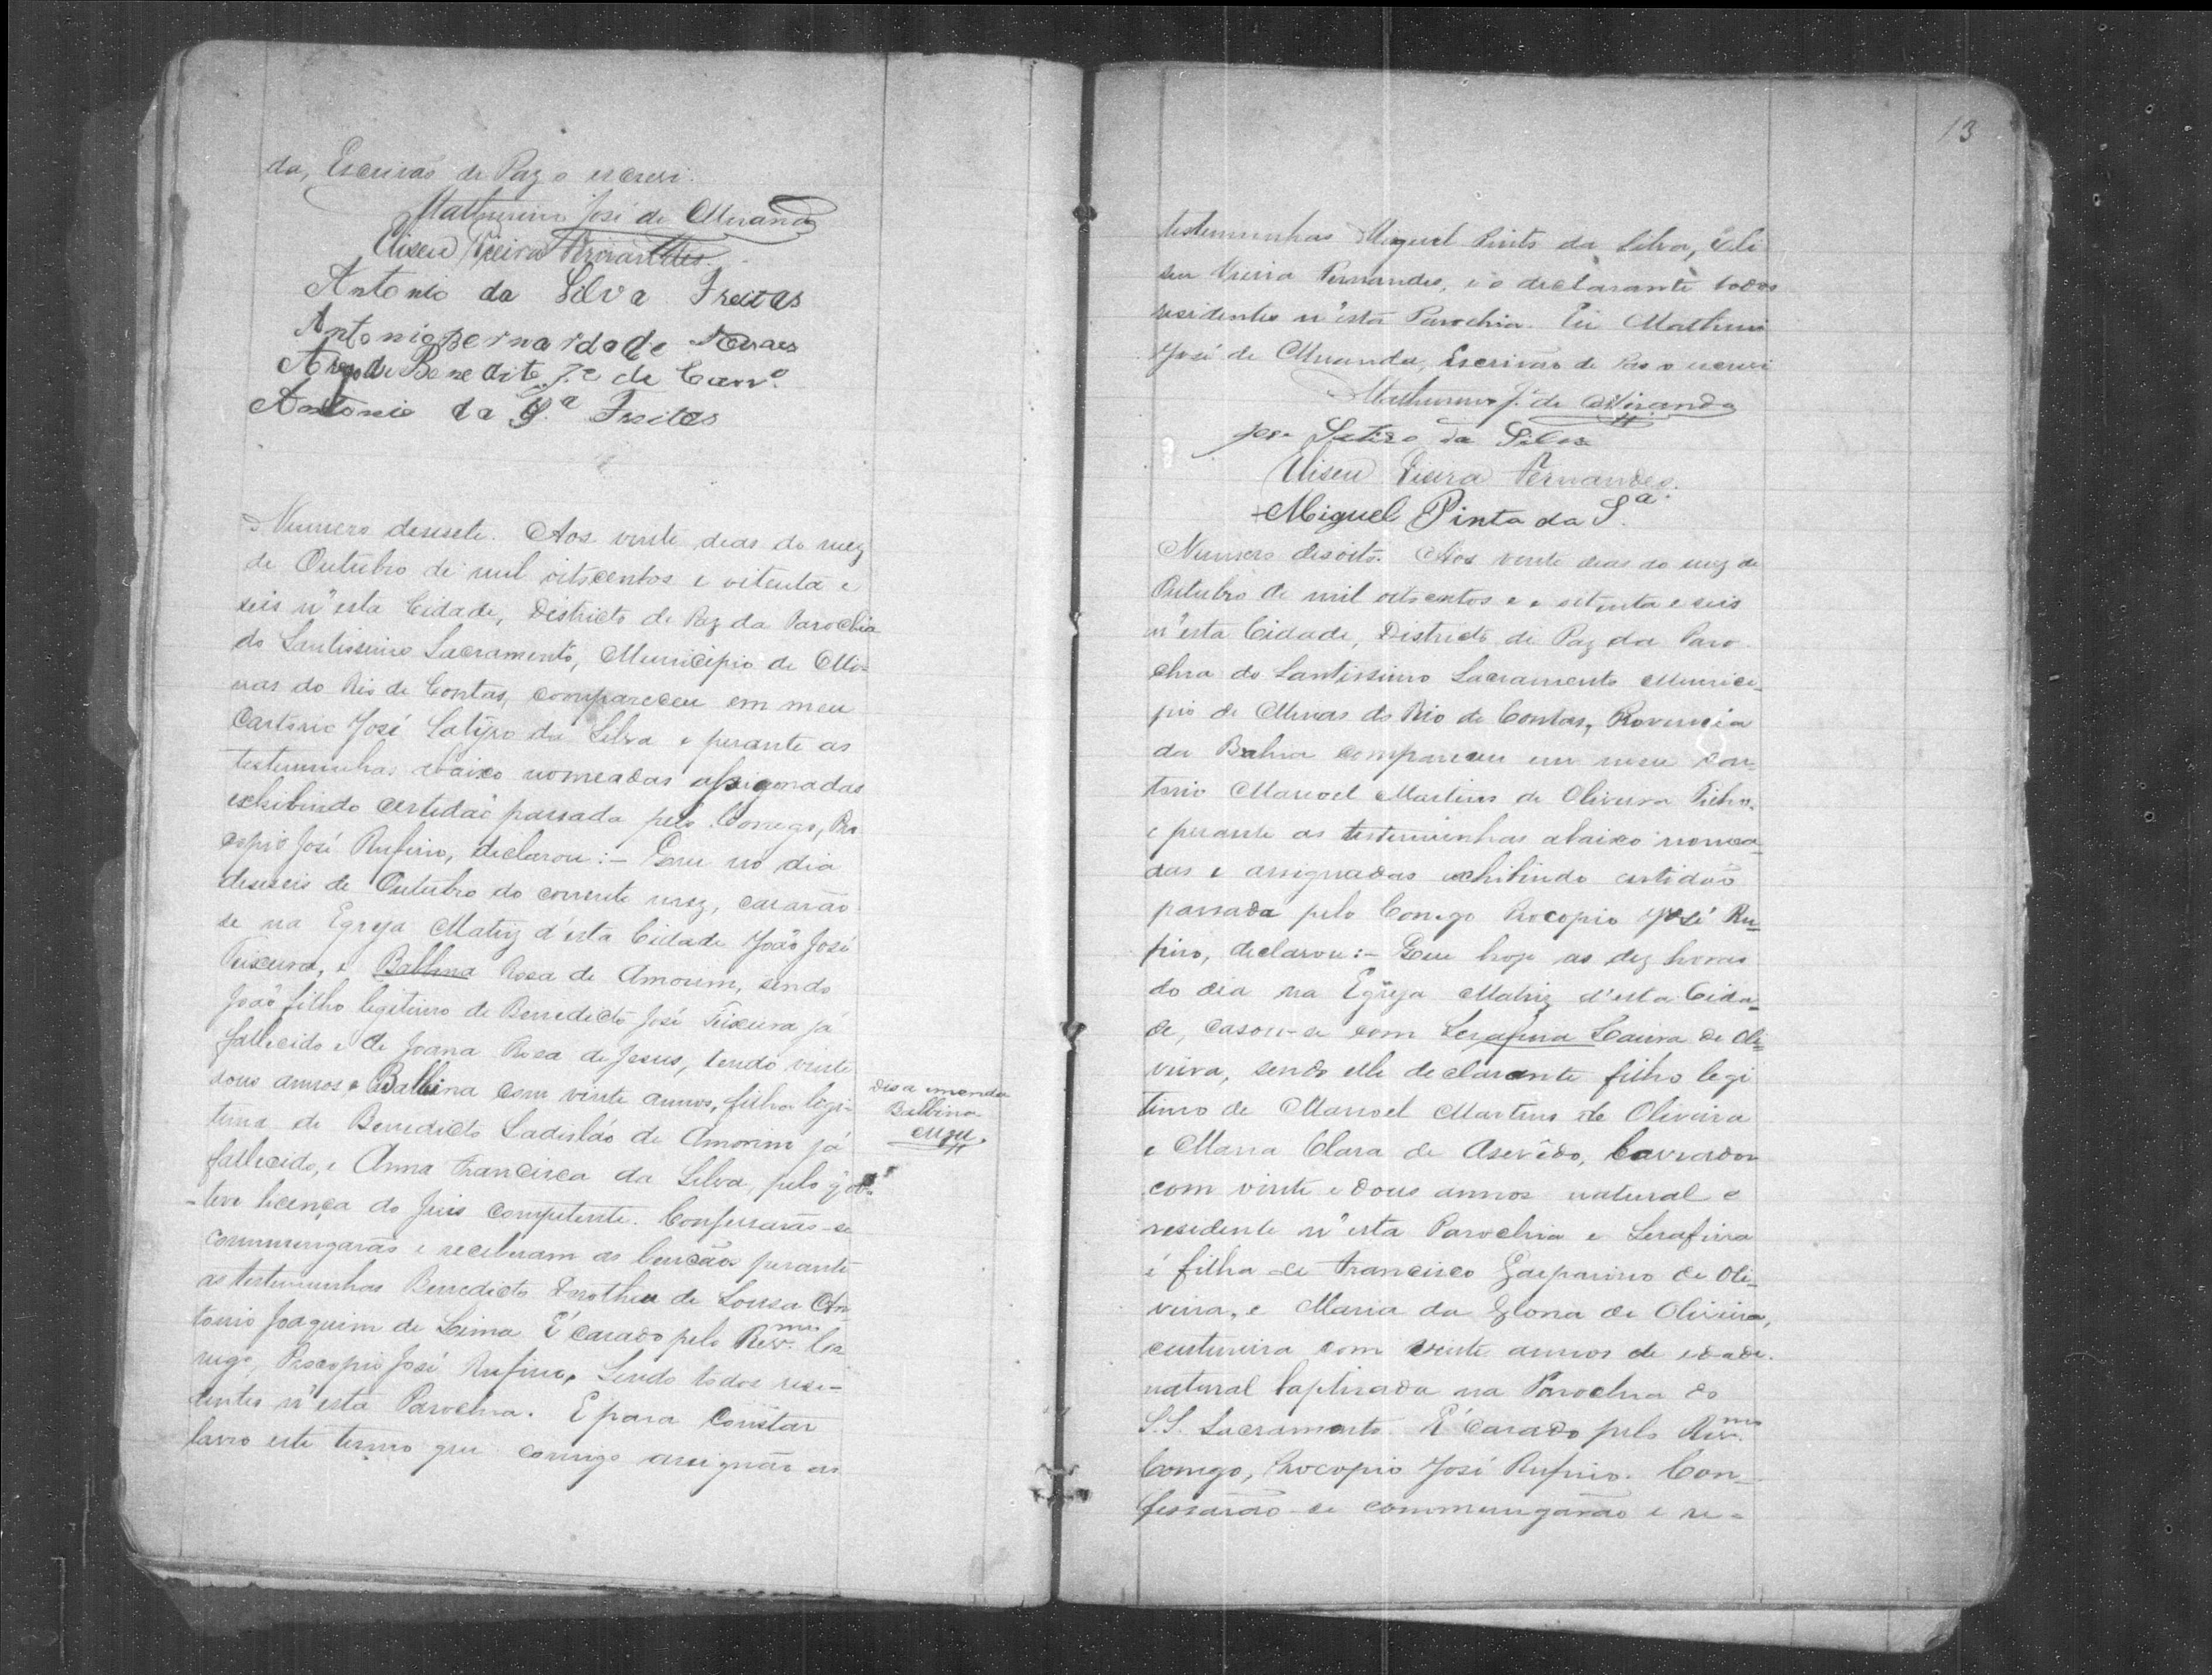 da, Escrivão de Paz o escrevi.
Mathurino José de Miranda
Eliseu Vieira Fernandes.
Antonio da Silva Freitas
Antonio Bernardo de Novaes
Benedito J.e de Carv.o
Antonio da S.a Freitas
Numero desesete. Aos vinte dias do mez
de Outubro de mil oitocentos e oitenta e
seis n'esta Cidade, Districto de Paz da Parochia
do Santissimo Sacramento, Municipio de Mi-
nas do Rio de Contas, compareceu em meu
Cartorio José Satiro da Silva e perante as
testemunhas abaixo nomeadas assignadas
exhibindo certidão passada pelo Conego, Pro
copio José Rufino, declarou:- Que no dia
deseseis de Outubro do corrente mez, casarão
se na Egreja Matriz d'esta Cidade João José
Teixeira, e Balbina Rosa de Amorim, sendo
João filho legitimo de Benedicto José Teixeira já
fallecido e de Joana Rosa de Jesus, tendo vinte
dous annos e Balbina com vinte annos, filha legi-
tima de Benedicto Ladisláo de Amorim já
fallecido, e Anna Francisca da Silva, pelo q'
teve licença do Juis competente. Confessarão-se
commungarão e receberam as bencãos perante
as testemunhas Benedicto Dorotheu de Sousa An
tonio Joaquim de Lima É casado pelo Rev.mo Co
nego, Procopio José Rufino, Sendo todos resi-
dentes n'esta Parochia. E para constar
lavro este termo que comigo assignão as
Disa emenda
Balbina
testemunhas Miguel Pinto da Silva, Eli
seu Vieira Fernandes, e o declarante todos
residentes n'esta Parochia. Eu Mathurino
José de Miranda, Escrivão de Paz o escrevi
Mathurino J.e de Miranda
José Satiro da Silva
Eliseu Vieira Fernandes.
Miguel Pinto da S.a
Numero desoito. Aos vinte dias do mez de
Outubro de mil oitocentos e e oitenta e seis
n'esta Cidade, Districto de Paz da Paro
chia do Santissimo Sacramento Munici-
pio de Minas do Rio de Contas, Provincia
da Bahia compareceu em meu Car-
torio Manoel Martins de Oliveira Filho,
e perante as testemunhas abaixo nomea-
das e assignadas exhibindo certidão
passada pelo Conego Procopio José Ru-
fino, declarou:- Que hoje as dez horas
do dia na Egreja Matriz d'esta Cida-
de, casou-se com Serafina Laura de Oli-
veira, sendo elle declarante filho legi
timo de Manoel Martins de Oliveira
e Maria Clara de Asevêdo, Lavrador
com vinte e dous annos natural e
residente n'esta Parochia e Serafina
é filha de Francisco Gasparino de Oli-
veira, e Maria da Gloria de Oliveira,
custureira com vinte annos de idade.
natural baptisada na Parochia do
S.S. Sacramento. É casado pelo Rev.mo
Conego, Procopio José Rufino. Con-
fessarão-se commungarão e re-
13